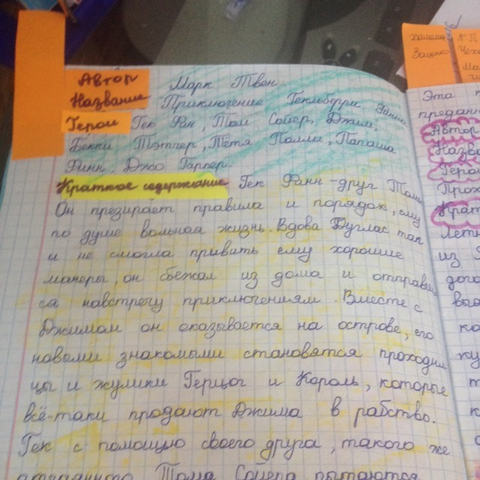 Автор Марк Твен
Название Приключение Гекльберри Финна
Герои Гек Фин, Том Сойер, Джим,
Бекки Тэтчер, Тетя Полли, Папаша
Финн, Джо Гарпер.
Краткое содержание Гек Финн - друг Тома
Он презирает правила и порядок, ему
по душе вольная жизнь. Вдова Дуглас так
и не смогла привить ему хорошие
манеры, он сбежал из дома и отправи
ся навстречу приключениям. Вместе с
Джимом он оказывается на острове, его
новыми знакомыми становятся проходим
цы и жулики Герцог и Король, которые
всё-таки продают Джима в рабство.
Гек с помощью своего друга, такого же
Тома Сойера пытаются
Эта
предан
Автор
Назва
Герои
Прох
Крат
из